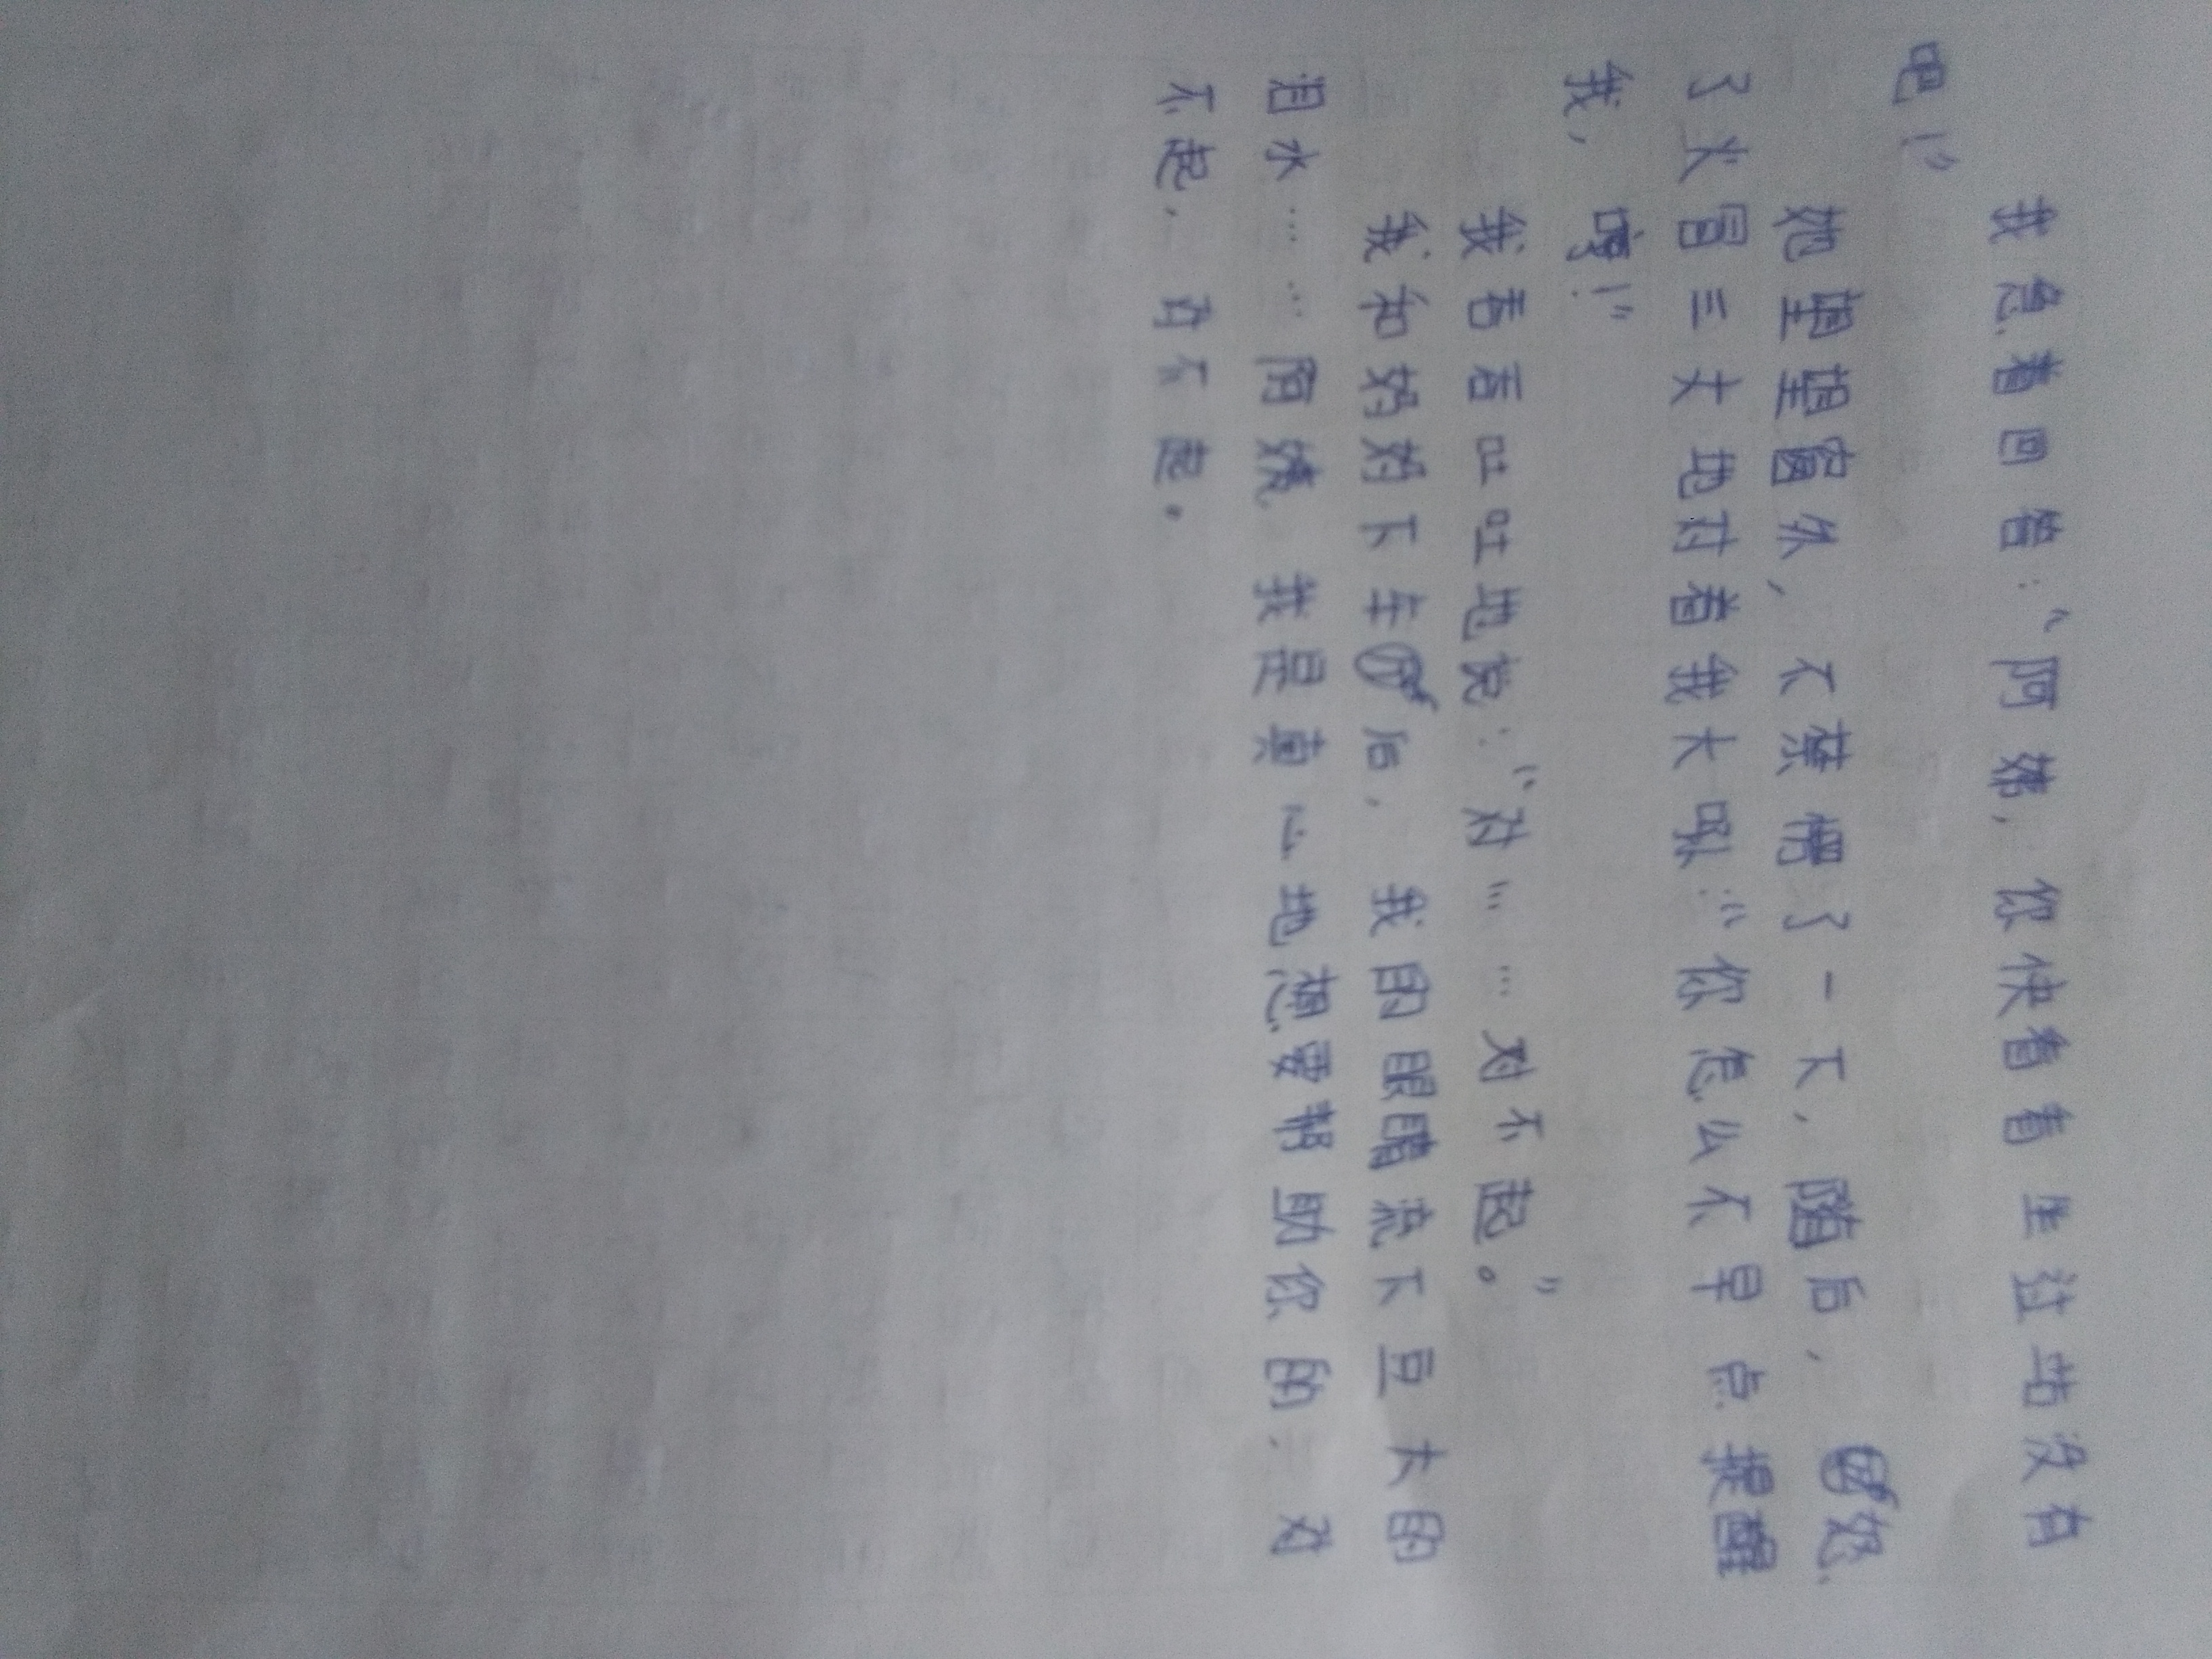 我急着回答：“阿姨，你快看看坐过站没有
吧！”
她望望窗外，不禁愣了一下，随后，怒
了火冒三大地对着我大吼：“你怎么不早点提醒
我，哼！”
我吞吞吐吐地说：“对……对不起。”
我和妈妈下车后，我的眼睛流下豆大的
泪水……阿姨 我是真心地想要帮助你的，对
不起，对不起。